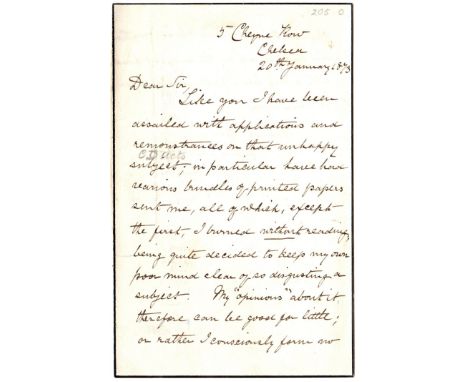 205
5 Cheyne Row
Chelsea
20th January 1873
Dear Sir,
Like you I have been
assailed with applications and
remonstrances on that unhappy
CD Acts
subject; in particular have had
various bundles of printed papers
sent me, all of which, except
the first, I burned without reading,
being quite decided to keep my own
poor mind clear of so disgusting a
subject. My "opinions" about it
therefore can be good for little;
or rather I consciously form no